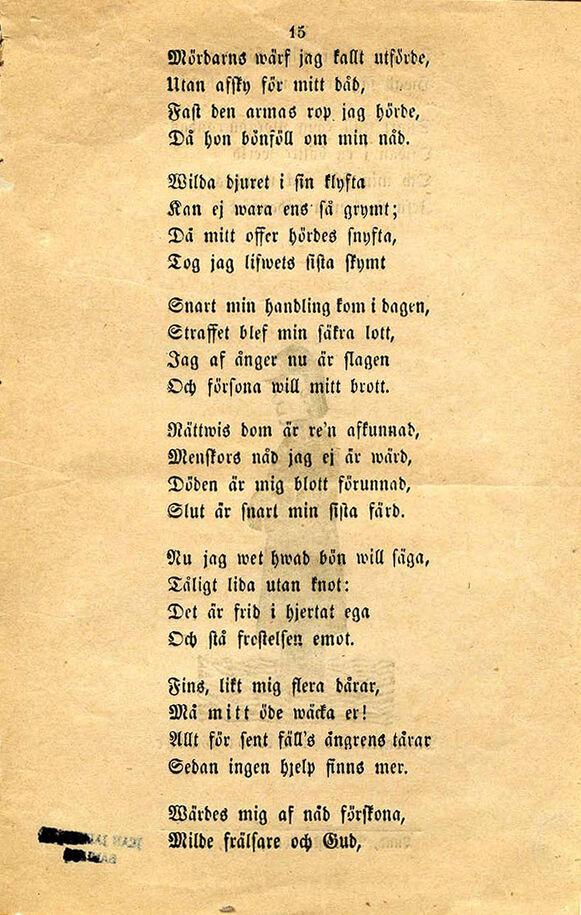 15
Mördarns wärf jag kallt utförde,
Utan afsky för mitt dåd,
Fast den armas rop jag hörde,
Då hon bönföll om min nåd.
Wilda djuret i sin klyfta
Kan ej wara ens så grymt;
Då mitt offer hördes snyfta,
Tog jag lifwets sista skymt
Snart min handling kom i dagen,
Straffet blef min säkra lott,
Jag af ånger nu är slagen
Och försona will mitt brott.
Rättwis dom är re'n afkunnad,
Menskors nåd jag ej är wärd,
Döden är mig blott förunnad,
Slut är snart min sista färd.
Nu jag wet hwad bön will säga,
Tåligt lida utan knot:
Det är frid i hjertat ega
Och stå frestelsen emot.
Fins, likt mig flera dårar,
Må mitt öde wäcka er!
Allt för sent fäll's ångrens tårar
Sedan ingen hjelp finns mer.
Wärdes mig af nåd förskona,
Milde frälsare och Gud,